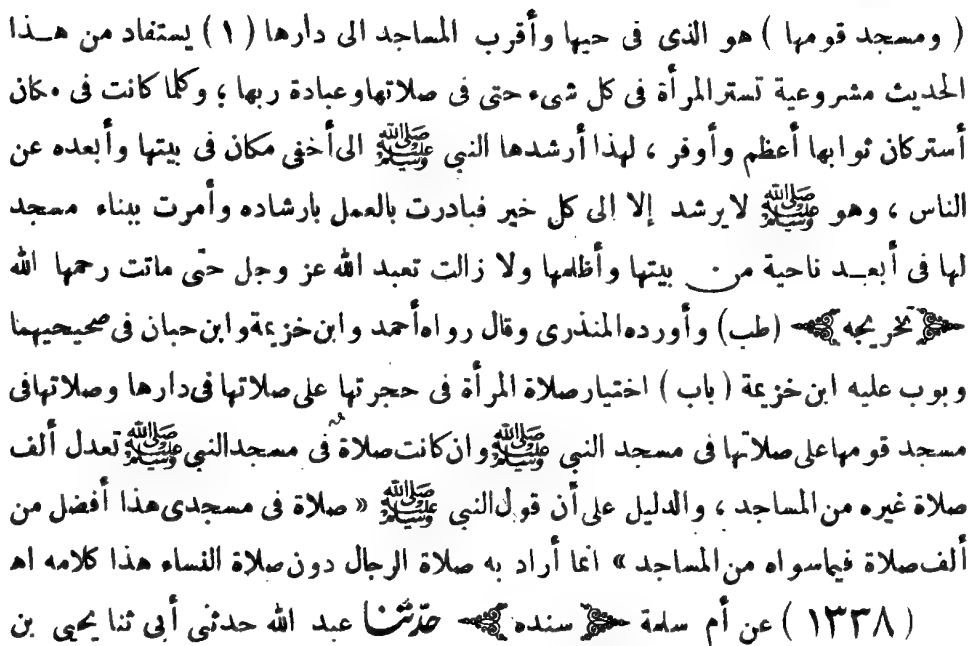 ( ومسجد قومها ) هو الذى فى حيها وأقرب المساجد الى دارها ( ١ ) يستفاد من هــذا
الحديث مشروعية تستر المرأة فى كل شىء حتى فى صلاتها وعبادة ربها ؛ وكلما كانت فى مكان
أستر كان ثوابها أعظم وأوفر ، لهذا أرشدها النبي ﷺ الى أخفى مكان فى بيتها وأبعده عن
الناس ، وهو ﷺ لا يرشد إلا إلى كل خير فبادرت بالعمل بارشاده وأمرت ببناء مسجد
لها فى أبعــد ناحية من بيتها وأظلمها ولا زالت تعبد الله عز وجل حتى ماتت رحمها الله
﴿ تخريجه ﴾ (طب) وأورده المنذرى وقال رواه أحمد وابن خزيمة وابن حبان فى صحيحيهما
وبوب عليه ابن خزيمة ( باب ) اختيار صلاة المرأة فى حجرتها على صلاتها فى دارها وصلاتها فى
مسجد قومها على صلاتها فى مسجد النبي ﷺ وان كانت صلاة فى مسجد النبي ﷺ تعدل ألف
صلاة غيره من المساجد ، والدليل على أن قول النبي ﷺ « صلاة فى مسجدى هذا أفضل من
ألف صلاة فيما سواه من المساجد » انما أراد به صلاة الرجال دون صلاة النساء هذا كلامه اهـ
( ١٣٣٨ ) عن أم سلمة ﴿ سنده ﴾ حدثنا عبد الله حدثنى أبى ثنا يحيى بن